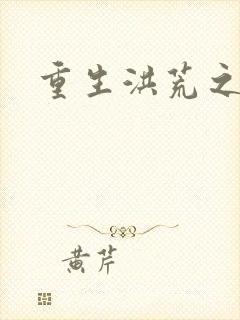 重生洪荒之
黄芹